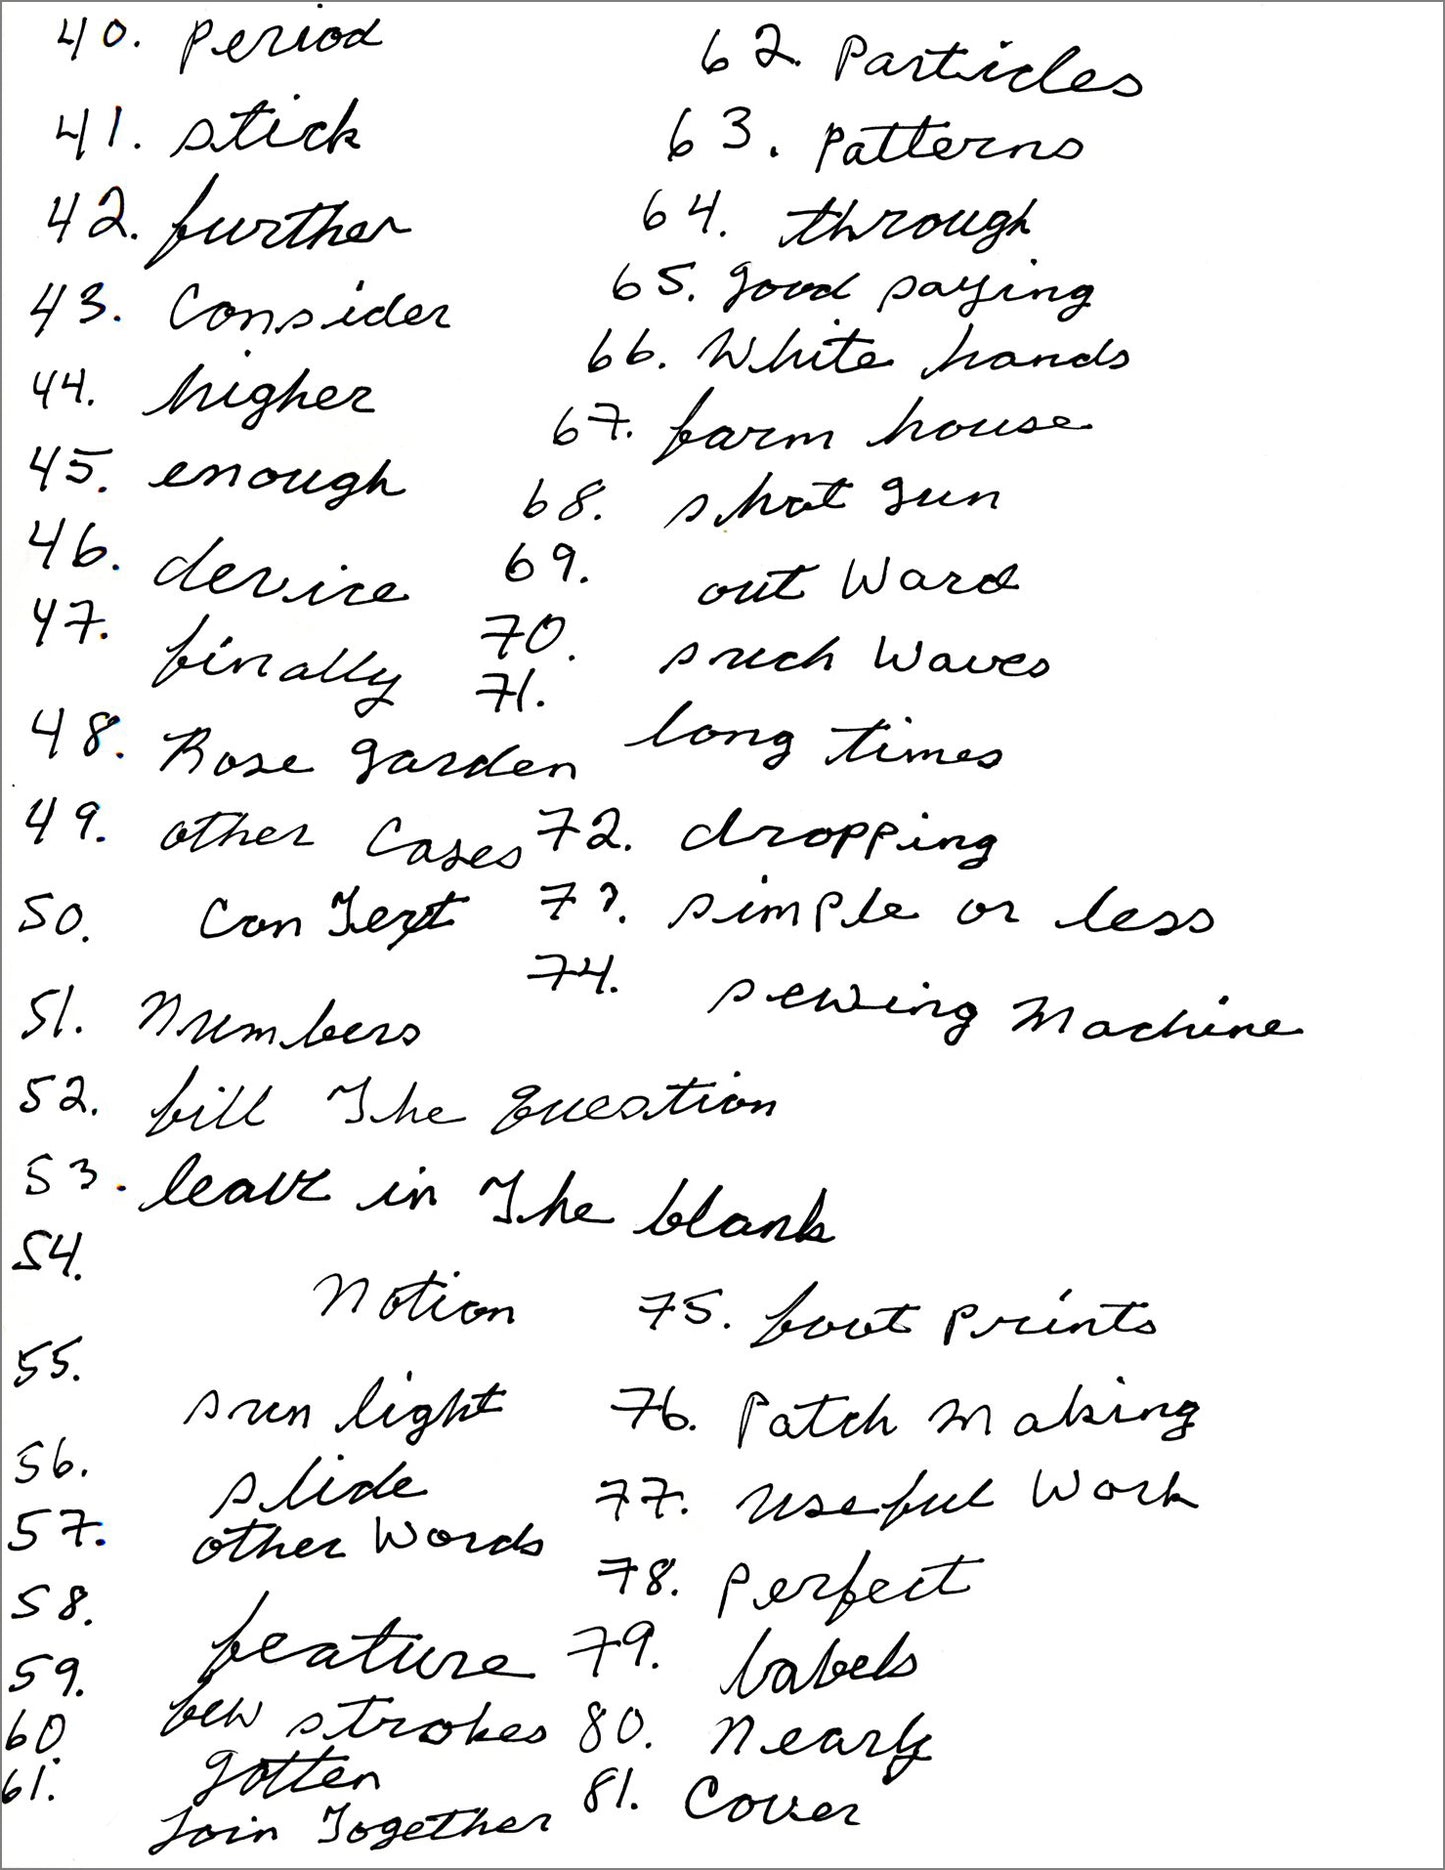 40. Period
41. stick
42. further
43. Consider
44. higher
45. enough
46. device
47. finally
48. Rose garden
49. other Cases
50. Con Text
51. Numbers
52. fill The question
53. leave in The blank
54. Notion
55. sun light
56. slide
57. other Words
58. feature
59. few strokes
60 gotten
61. Join Together
62. Particles
63. Patterns
64. through
65. good paying
66. White hands
67. farm house
68. shot gun
69. out Ward
70. such Waves
71. long times
72. dropping
73. simple or less
74. sewing Machine
75. foot Prints
76. Patch Making
77. useful Work
78. Perfect
79. labels
80. Nearly
81. Cover